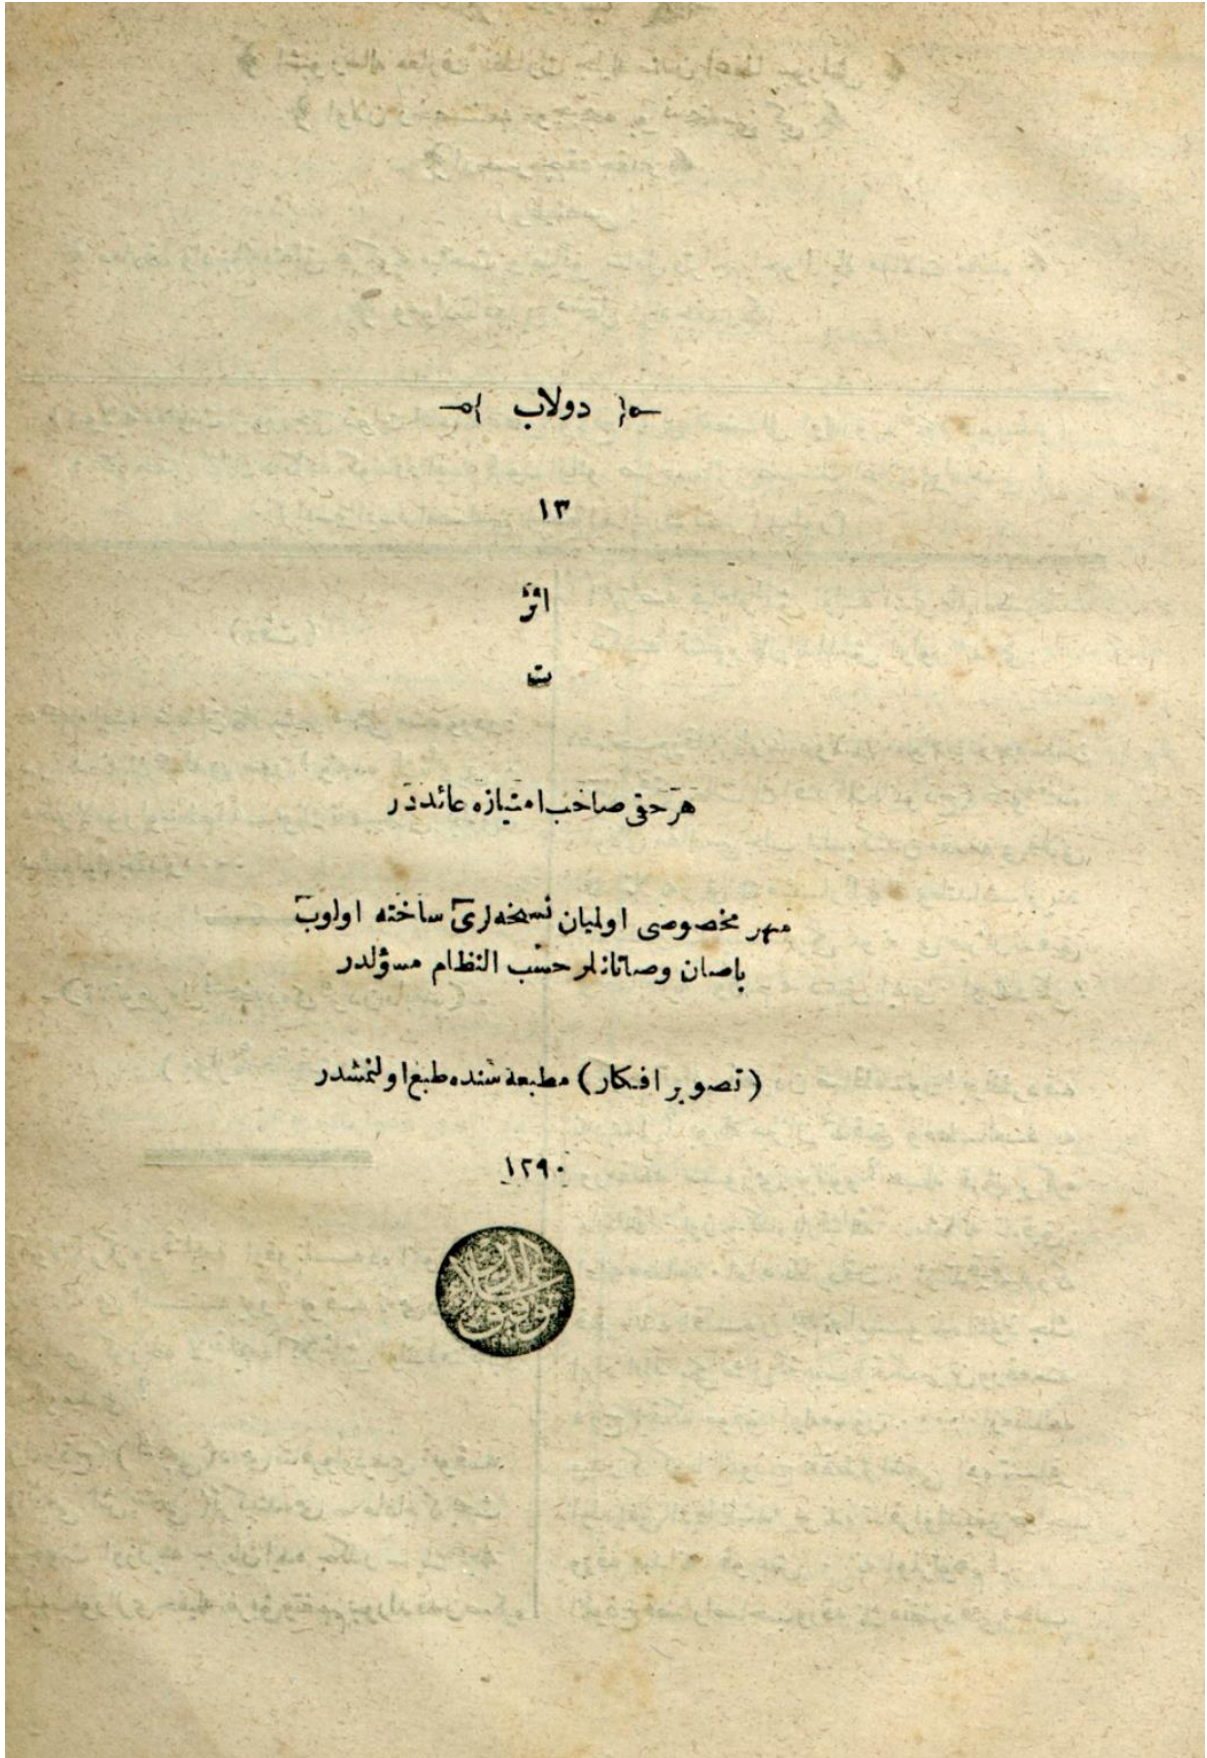 دولاب
١٣
اثر
ت
هر حقى صاحب امتيازه عائددر
مهر مخصوصى اولميان نسخه‌لرى ساخته اولوب
باصان وصاتانلر حسب النظام مسؤلدر
(تصوير افكار) مطبعه‌سنده طبع اولنمشدر
١٢٩٠
توفيق